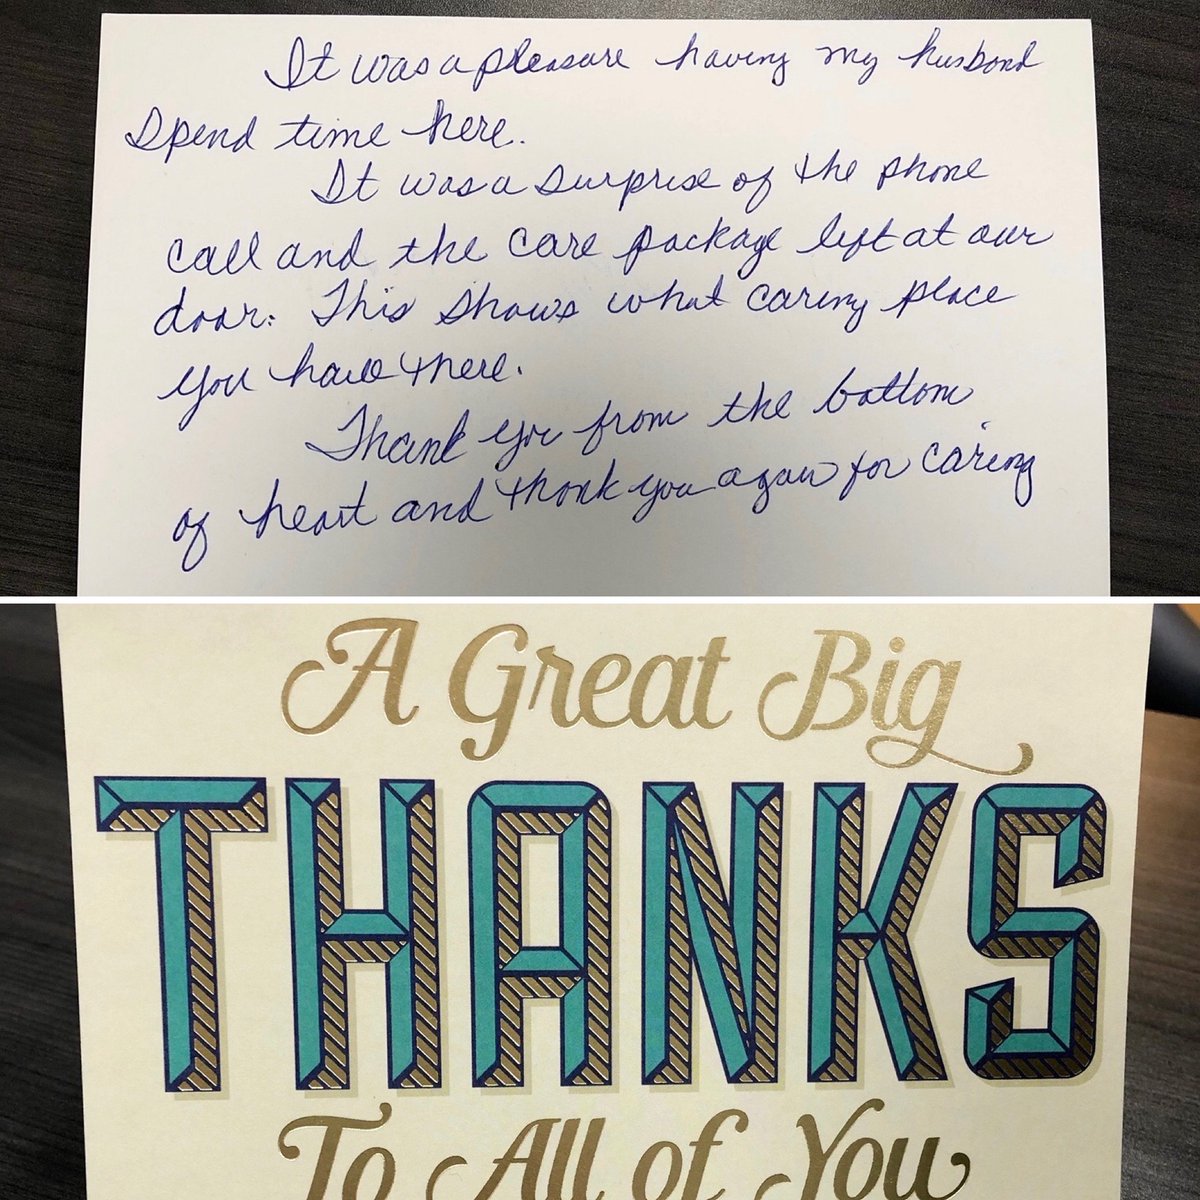 It was a pleasure having my husband
spend time here.
It was a surprise of the phone
call and the care package left at our
door. This shows what caring place
you have there.
Thank you from the bottom
of heart and thank you again for caring
A Great Big
THANKS
To All of You